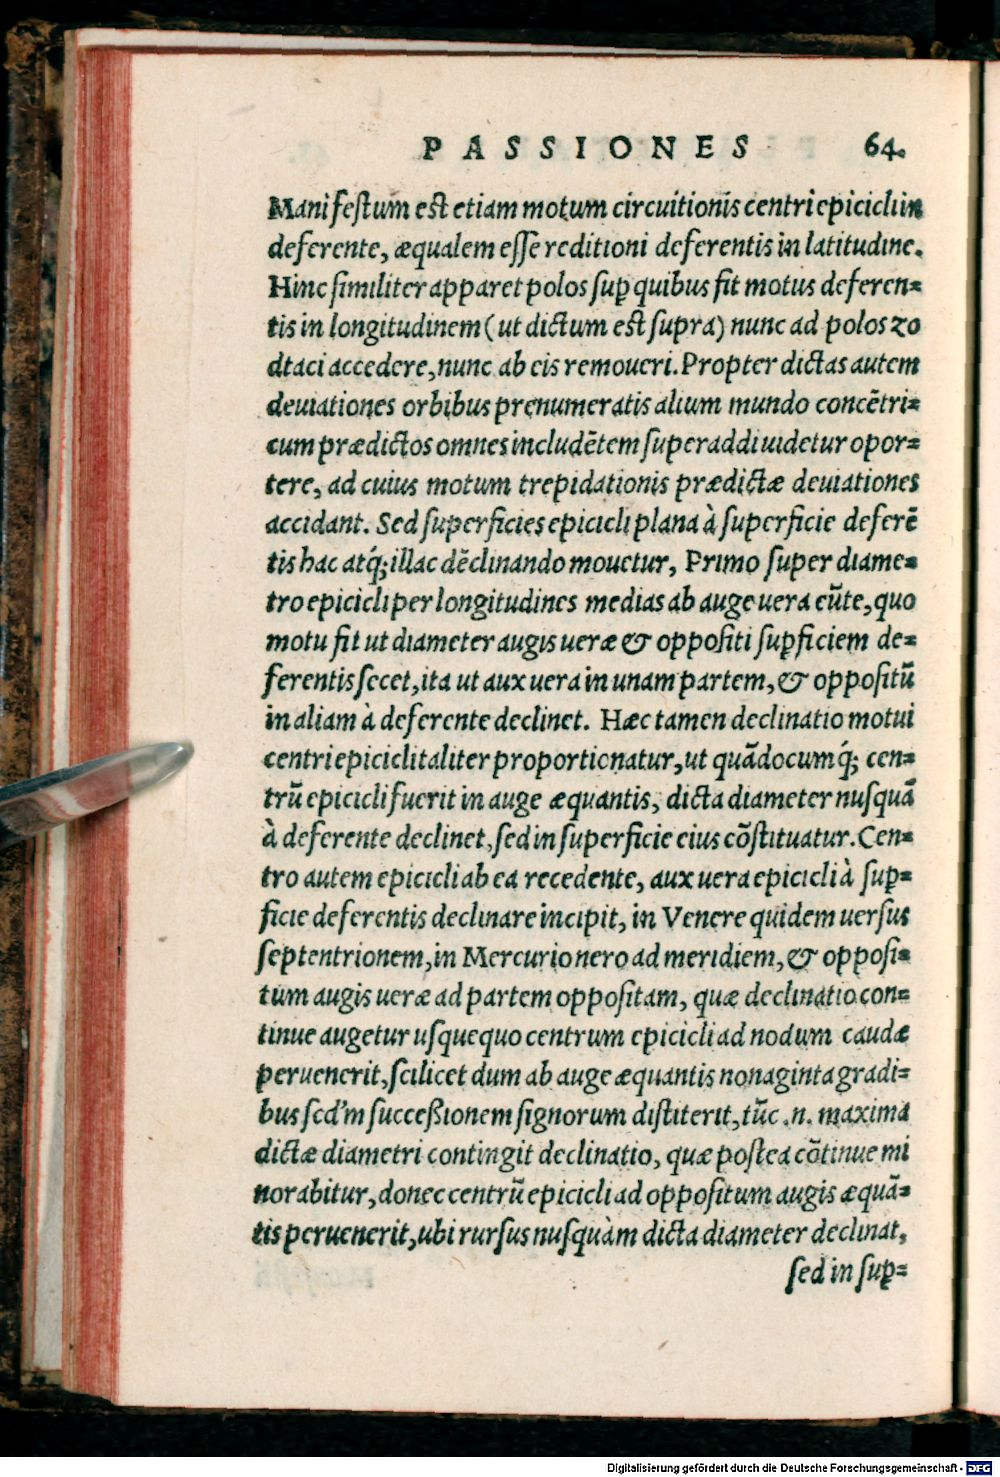 PASSIONES 64.
Manifeſtum eſt etiam motum circuitionis centri epicicli in
deferente, æqualem eſſe reditioni deferentis in latitudine.
Hinc ſimiliter apparet polos ſuꝑ quibus fit motus deferen⸗
tis in longitudinem (ut dictum eſt ſupra) nunc ad polos zo
dtaci accedere, nunc ab eis remoueri. Propter dictas autem
deuiationes orbibus prenumeratis alium mundo concẽtri⸗
cum prædictos omnes includẽtem ſuperaddi uidetur opor⸗
tere, ad cuius motum trepidationis prædictæ deuiationes
accidant. Sed ſuperficies epicicli plana à ſuperficie deferẽ
tis hac atq́; illac dẽclinando mouetur, Primo ſuper diame⸗
tro epicicli per longitudines medias ab auge uera eũte, quo
motu fit ut diameter augis ueræ & oppoſiti ſuꝑficiem de⸗
ferentis ſecet, ita ut aux uera in unam partem, & oppoſitũ
in aliam à deferente declinet. Hæc tamen declinatio motui
centri epicicli taliter proportionatur, ut quãdocumq́; cen⸗
trũ epicicli fuerit in auge æquantis, dicta diameter nuſquã
à deferente declinet, ſed in ſuperficie eius cõſtituatur. Cen⸗
tro autem epicicli ab ea recedente, aux uera epicicli à ſuꝑ⸗
ficie deferentis declinare incipit, in Venere quidem uerſus
ſeptentrionem, in Mercurio nero ad meridiem, & oppoſi⸗
tum augis ueræ ad partem oppoſitam, quæ declinatio con⸗
tinue augetur uſquequo centrum epicicli ad nodum caudæ
peruenerit, ſcilicet dum ab auge æquantis nonaginta gradi⸗
bus ſcd'm ſucceßionem ſignorum diſtiterit, tũc .n. maxima
dictæ diametri contingit declinatio, quæ poſtea cõtinue mi
norabitur, donec centrũ epicicli ad oppoſitum augis æquã⸗
tis peruenerit, ubi rurſus nuſquàm dicta diameter declinat,
ſed in ſuꝑ⸗
Digitalisierung gefördert durch die Deutsche Forschungsgemeinschaft - DFG